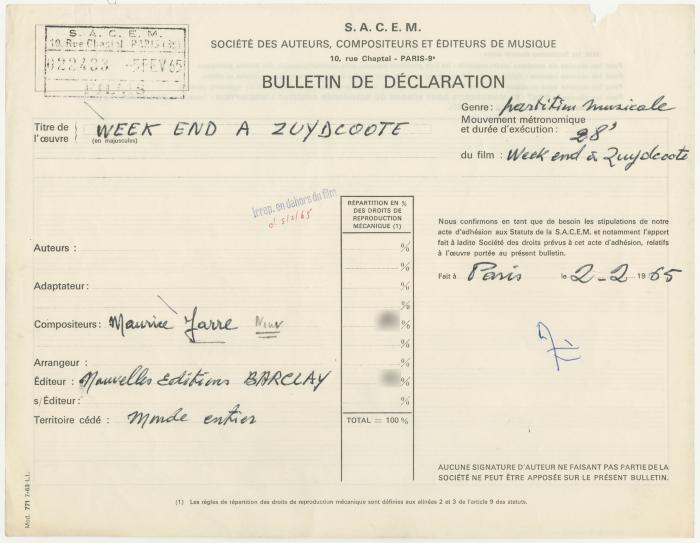 S. A. C. E. M.
10, Rue Chaptal - PARIS (9e)
022423 -5 FEV 65
FILMS
S. A. C. E. M.
SOCIÉTÉ DES AUTEURS, COMPOSITEURS ET ÉDITEURS DE MUSIQUE
10, rue Chaptal - PARIS-9e
BULLETIN DE DÉCLARATION
Titre de l'œuvre
(en majuscules)
WEEK END A ZUYDCOOTE
Genre : partition musicale
Mouvement métronomique
et durée d'exécution : 28'
du film : Week end à Zuydcoote
Irrep. en dehors du film
d. 5/2/65
RÉPARTITION EN %
DES DROITS DE
REPRODUCTION
MÉCANIQUE (1)
Nous confirmons en tant que de besoin les stipulations de notre
acte d'adhésion aux Statuts de la S.A.C.E.M. et notamment l'apport
fait à ladite Société des droits prévus à cet acte d'adhésion, relatifs
à l'œuvre portée au présent bulletin.
Fait à Paris le 2-2 1965
Auteurs : %
%
Adaptateur : %
%
Compositeurs : Maurice Jarre Nouv %
%
Arrangeur : %
Éditeur : Nouvelles Editions BARCLAY %
s/Éditeur : %
Territoire cédé : Monde entier
TOTAL = 100 %
AUCUNE SIGNATURE D'AUTEUR NE FAISANT PAS PARTIE DE LA
SOCIÉTÉ NE PEUT ÊTRE APPOSÉE SUR LE PRÉSENT BULLETIN.
(1) Les règles de répartition des droits de reproduction mécanique sont définies aux alinéas 2 et 3 de l'article 9 des statuts.
Mod. 771 7-63 L.I.